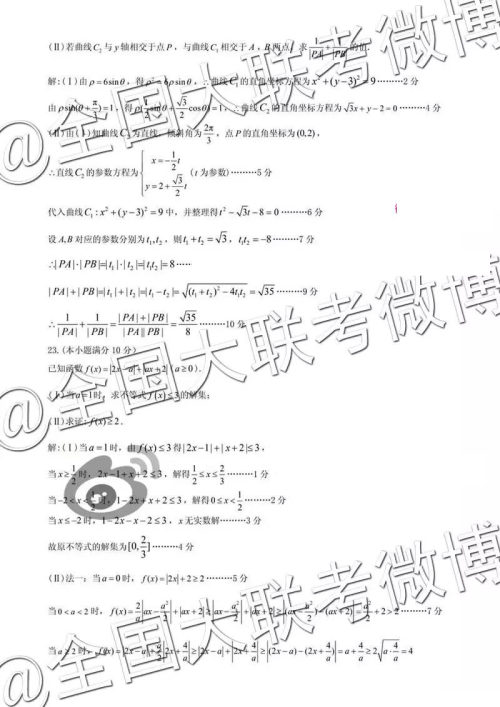 (Ⅱ)若曲线C₂与y轴相交于点P，与曲线C₁相交于A，B两点，求 1/|PA| + 1/|PB| 的值.
解:(Ⅰ)由ρ=6sinθ，得ρ²=6ρsinθ，∴曲线C₁的直角坐标方程为x²+(y-3)²=9………2分
由ρsin(θ+π/3)=1，得ρ(1/2 sinθ+√3/2 cosθ)=1，∴曲线C₂的直角坐标方程为√3x+y-2=0………4分
(Ⅱ)由(Ⅰ)知曲线C₂为直线，倾斜角为2π/3，点P的直角坐标为(0,2)，
∴直线C₂的参数方程为{x=-1/2 t
y=2+√3/2 t (t为参数)………5分
代入曲线C₁:x²+(y-3)²=9中，并整理得t²-√3t-8=0………6分
设A,B对应的参数分别为t₁,t₂，则t₁+t₂=√3，t₁t₂=-8………7分
∴|PA|·|PB|=|t₁|·|t₂|=|t₁t₂|=8……
|PA|+|PB|=|t₁|+|t₂|=|t₁-t₂|=√((t₁+t₂)²-4t₁t₂)=√35………9分
∴1/|PA|+1/|PB|=(|PA|+|PB|)/(|PA||PB|)=√35/8………10分
23.(本小题满分10分)
已知函数f(x)=|2x-a|+|ax+2|(a≥0).
(Ⅰ)当a=1时，求不等式f(x)≤3的解集;
(Ⅱ)求证:f(x)≥2.
解:(Ⅰ)当a=1时，由f(x)≤3得|2x-1|+|x+2|≤3，
当x≥1/2时，2x-1+x+2≤3，解得1/2≤x≤2/3………1分
当-2<x<1/2时，1-2x+x+2≤3，解得0≤x<1/2………2分
当x≤-2时，1-2x-x-2≤3，x无实数解………3分
故原不等式的解集为[0,2/3]………4分
(Ⅱ)法一：当a=0时，f(x)=|2x|+2≥2………5分
当0<a<2时，f(x)=2/a|ax-a²/2|+|ax+2|≥|ax-a²/2|+|ax+2|≥|(ax-a²/2)-(ax+2)|=a²/2+2>2………7分
当a≥2时，f(x)=|2x-a|+a/2|2x+4/a|≥|2x-a|+|2x+4/a|≥|(2x-a)-(2x+4/a)|=a+4/a≥2√(a·4/a)=4
@全国大联考微博
@全国大联考微博